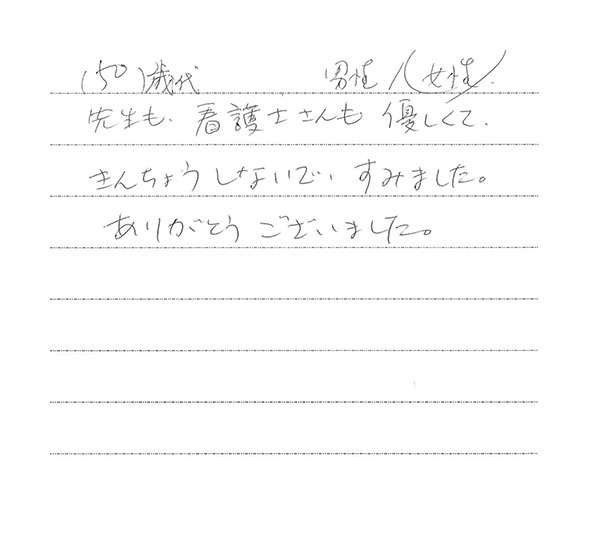 (50)歳代 男性/女性
先生も、看護士さんも優しくて、
きんちょうしないで、すみました。
ありがとうございました。